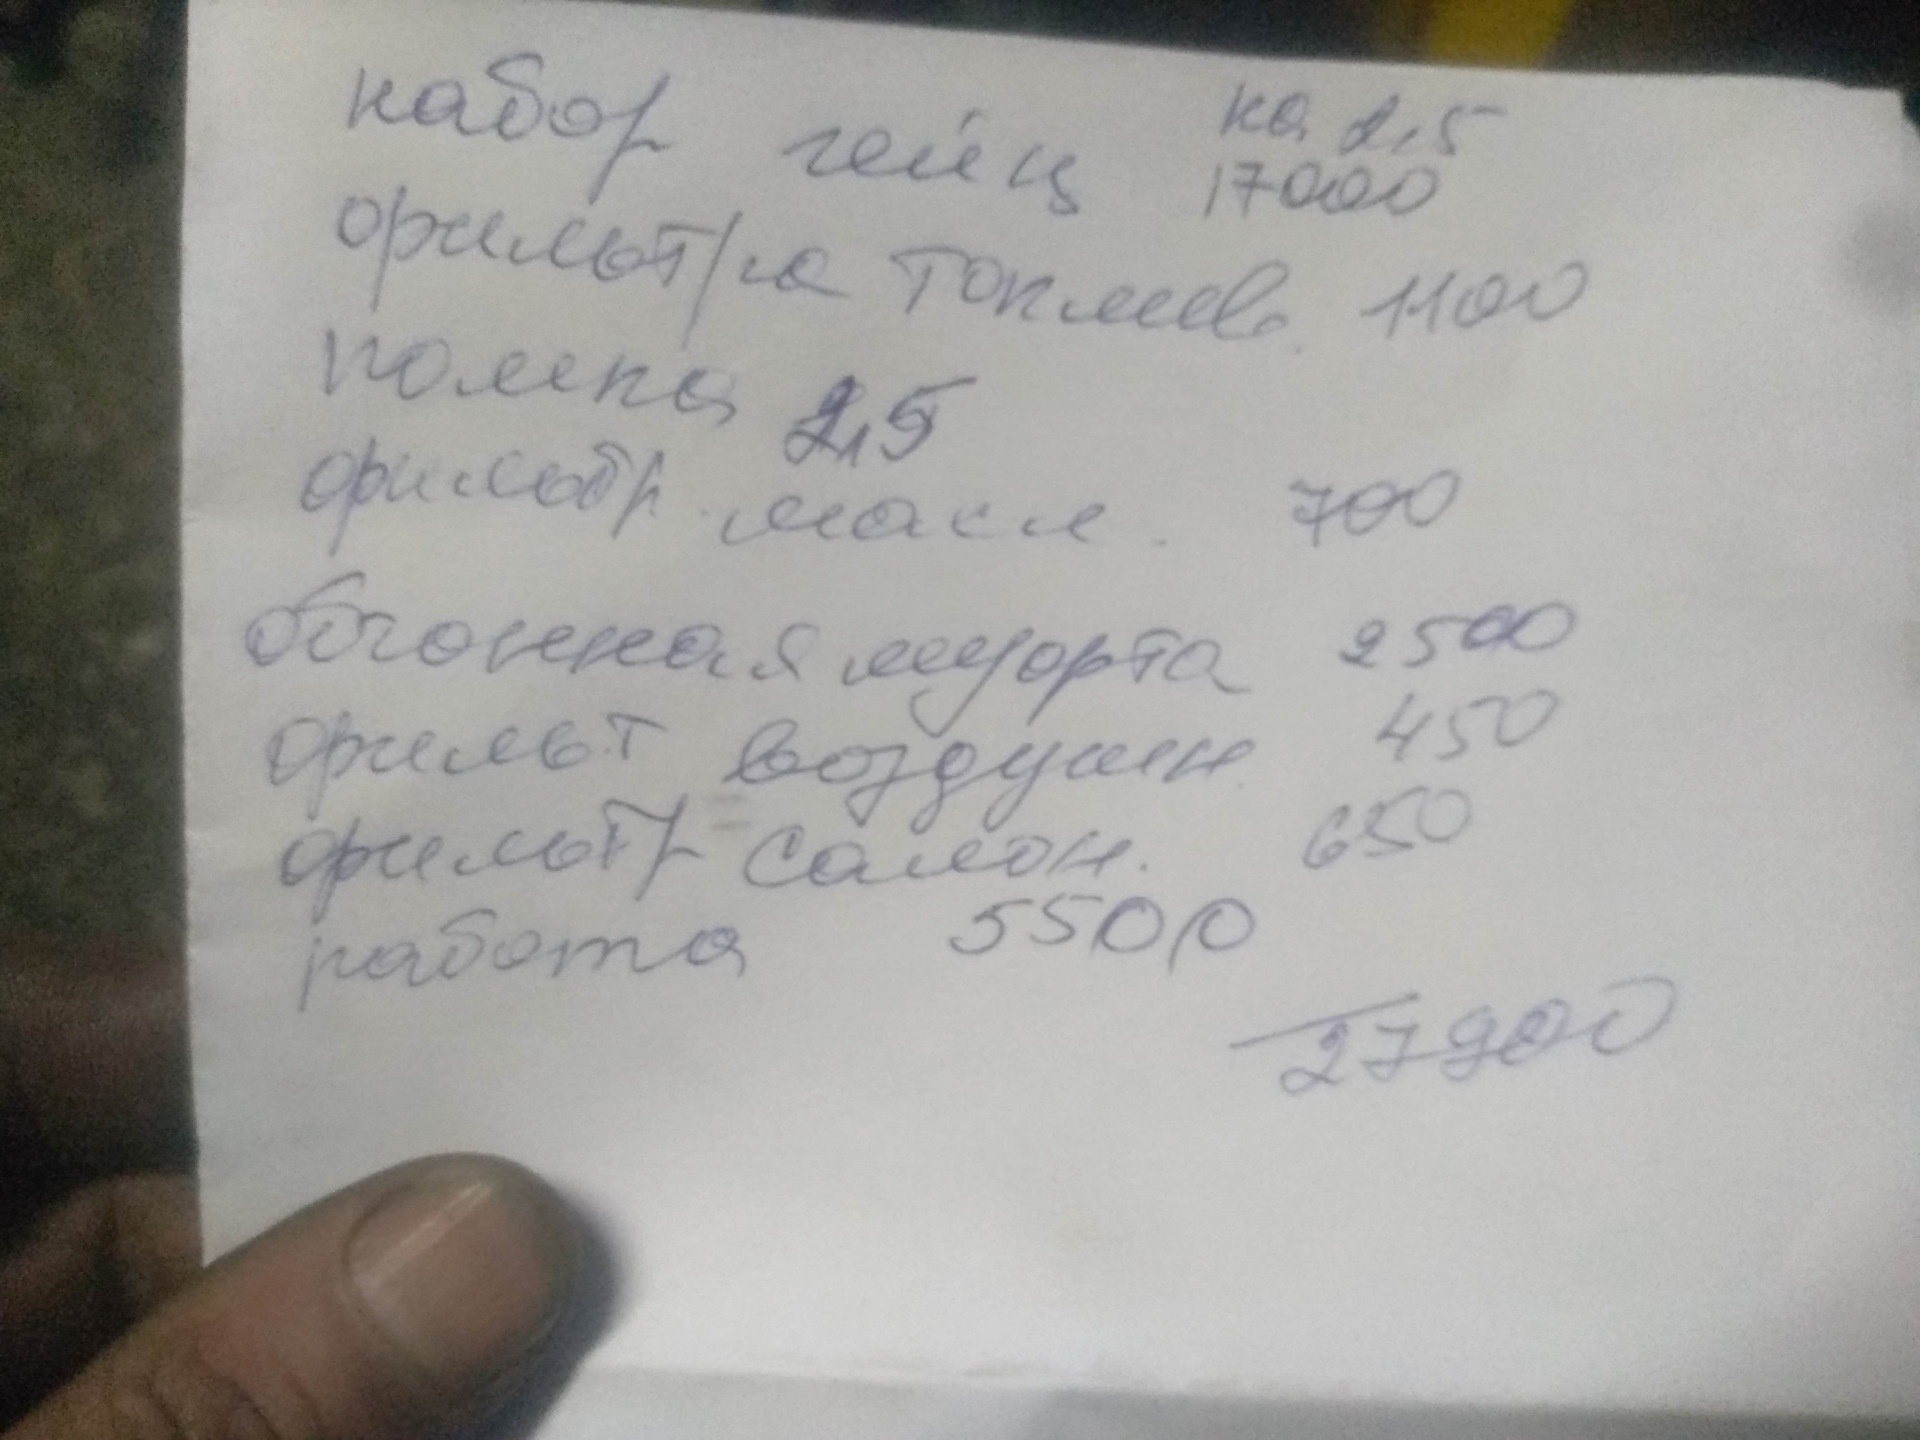 набор гейц на 2,5
17000
фильтра топлив. 1100
помпа 2,5
фильтр. масл. 700
обгонная муфта 2500
фильт воздушн. 450
фильтр салон. 650
работа 5500
27900